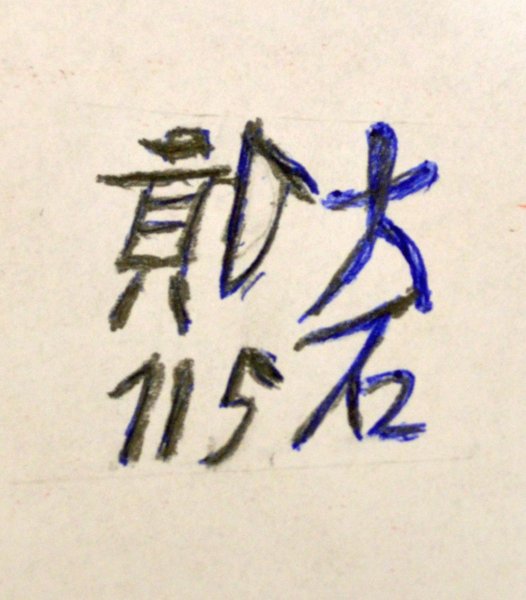 大石
115